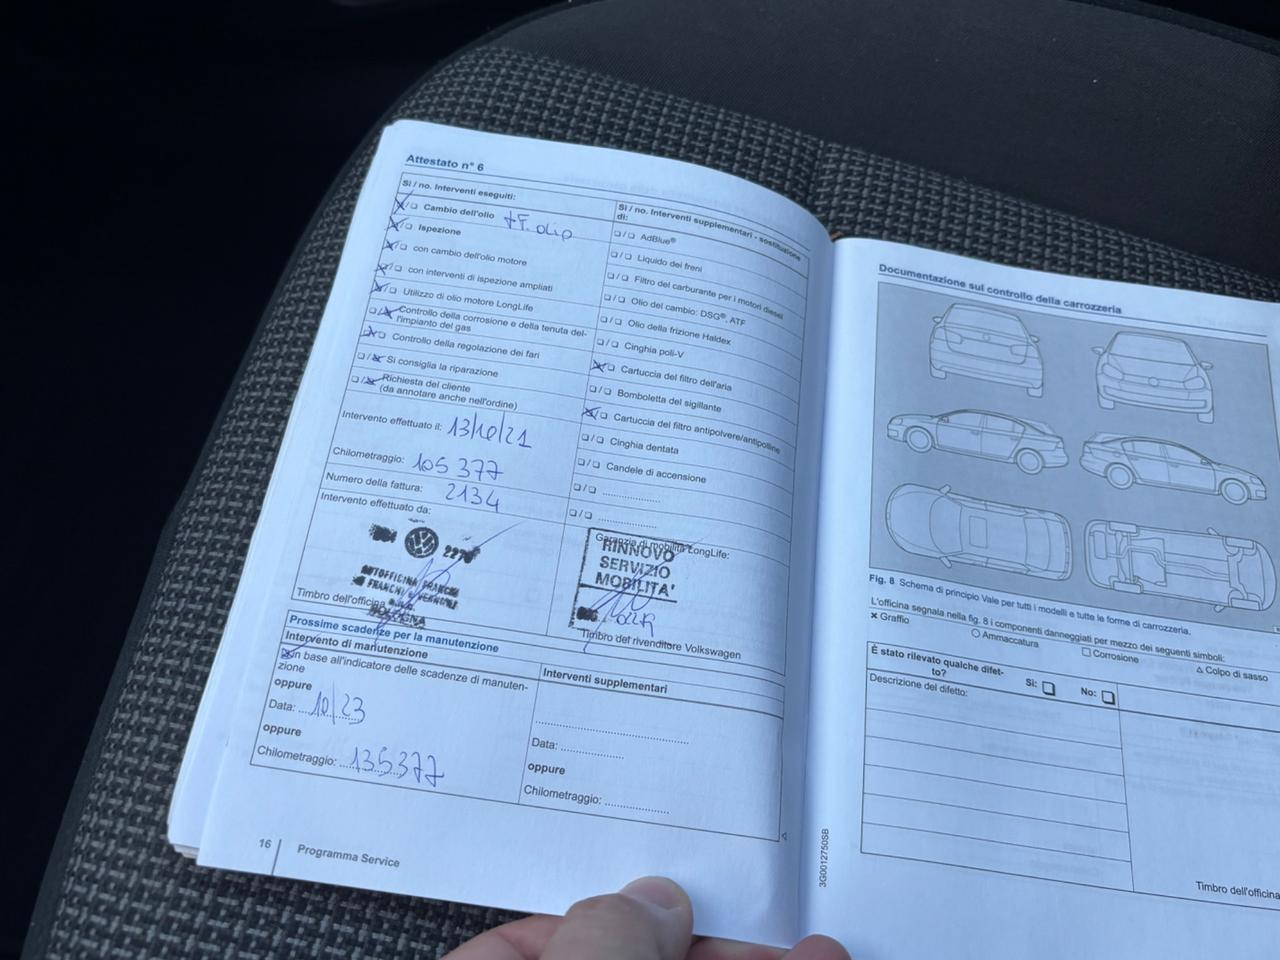 Attestato n° 6
Si / no. Interventi eseguiti:
/ Cambio dell'olio +F. olio
/ Ispezione
/ con cambio dell'olio motore
/ con interventi di ispezione ampliati
/ Utilizzo di olio motore LongLife
/ Controllo della corrosione e della tenuta del-
l'impianto del gas
/ Controllo della regolazione dei fari
/ Si consiglia la riparazione
/ Richiesta del cliente
(da annotare anche nell'ordine)
Intervento effettuato il: 13/10/21
Chilometraggio: 105 377
Numero della fattura: 2134
Intervento effettuato da:
AUTOFFICINA FRANCHI
BOLOGNA
Timbro dell'officina
Si / no. Interventi supplementari - sostituzione
di:
/ AdBlue®
/ Liquido dei freni
/ Filtro del carburante per i motori diesel
/ Olio del cambio: DSG®, ATF
/ Olio della frizione Haldex
/ Cinghia poli-V
/ Cartuccia del filtro dell'aria
/ Bomboletta del sigillante
/ Cartuccia del filtro antipolvere/antipolline
/ Cinghia dentata
/ Candele di accensione
/ ....................
/ ....................
Garanzia di mobilità LongLife:
RINNOVO
SERVIZIO
MOBILITA'
Timbro del rivenditore Volkswagen
Prossime scadenze per la manutenzione
Intervento di manutenzione
in base all'indicatore delle scadenze di manuten-
zione
oppure
Data: 10/23
oppure
Chilometraggio: 135377
Interventi supplementari
Data: ....................
oppure
Chilometraggio: ....................
16
Programma Service
Documentazione sul controllo della carrozzeria
Fig. 8 Schema di principio Vale per tutti i modelli e tutte le forme di carrozzeria.
L'officina segnala nella fig. 8 i componenti danneggiati per mezzo dei seguenti simboli:
× Graffio ○ Ammaccatura □ Corrosione △ Colpo di sasso
È stato rilevato qualche difet-
to? Si: No:
Descrizione del difetto:
Timbro dell'officina
3G0012750SB